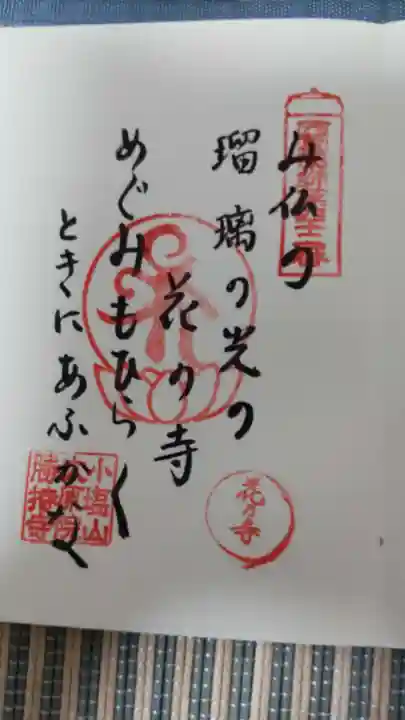 み仏の
瑠璃の光の
花の寺
めぐみもひらく
ときにあふかな
花の寺
小塩山
大原院
勝持寺